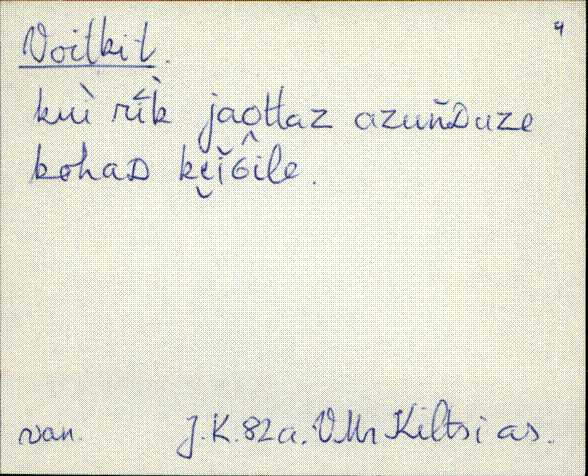 9
Voitkit.
kuì rīk̀ jaottaz azuňᴅuze
kohaᴅ kẹ̆ĭGile.
van. J.K. 82a. VMr Kiltsi as.